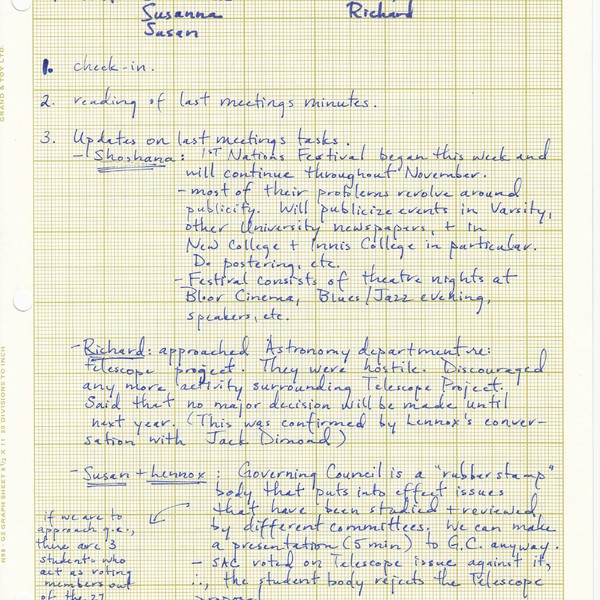 Susanna Richard
Susan
1. check-in.
2. reading of last meetings minutes.
3. Updates on last meetings tasks.
- Shoshana: 1ST Nations Festival began this week and
will continue throughout November.
- most of their problems revolve around
publicity. Will publicize events in Varsity,
other University newspapers, + in
New College + Innis College in particular.
Do postering, etc.
- Festival consists of theatre nights at
Bloor Cinema, Blues/Jazz evening,
speakers, etc.
- Richard: approached Astronomy department re:
telescope project. They were hostile. Discouraged
any more activity surrounding Telescope Project.
Said that no major decision will be made until
next year. (This was confirmed by Lennox's conver-
sation with Jack Dimond)
- Susan + Lennox: Governing Council is a "rubber stamp"
body that puts into effect issues
that have been studied + reviewed,
by different committees. We can make
a presentation (5 min) to G.C. anyway.
- SAC voted on Telescope issue against it,
∴, the student body rejects the Telescope
if we are to
approach g.c.,
there are 3
students who
act as voting
members out
of the 27
GRAND & TOY LTD.
GRAPH SHEET 8½ X 11 20 DIVISIONS TO INCH